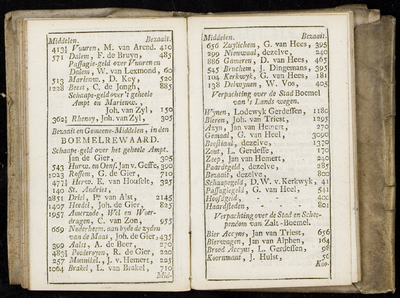 Middelen. Bezaait.
413½ Vuuren, M. van Arend. 410
571 Dalem, F. de Bruyn, 485
Passagie-geld over Vuuren en
Dalem, W. van Lexmond, 60
513 Marienw. , D. Key, 520
1228 Beest, C. de Jongh, 885
Schaape-geld over 't geheele
Ampt en Marienw. ,
Joh. van Zyl, 150
362½ Rhenoy, Joh. van Zyl, 305
Bezaait en Gemeene-Middelen, in den
BOEMELREWAARD.
Schaape-geld over het geheele Ampt.
jan de Gier, 305
543 Herw. en Oenf. Jan v. Geffs, 390
1023 Rossem, G. de Gier, 710
477½ Herw. E. van Houfelt, 325
140 St. Andries,
2851 Driel, Pr. van Alst, 2145
1407 Heedel, Joh. de Gier, 825
1957 Amerzode, Wel en Woer-
dragen, C. van Zon, 955
669 Nederhem. aan byde de zyden
van de Maas, Joh. de Gier, 435
399 Aalst, A. de Beer, 270
483½ Poederoyen, R. de Gier, 220
257 Munnikl. , J. v. Hemert, 225
1064 Brakel, L. van Brakel, 710
Mid-
Middelen. Bezaait.
656 Zuylichem, G. van Hees, 395
299 Nieuwaal, dezelve, 240
886 Gameren, D. van Hees, 465
545 Bruchem, J. Dingemans, 395
104 Kerkwyk, G. van Hees, 181
138 Delwynen, W. Vos, 405
Verpachting over de Stad Boemel
van 's Lands wegen.
Wynen, Lodewyk Gerdessen, 1180
Bieren, Joh. van Triest, 1295
Azyn, Jan van Hemert, 270
Gemaal, G. van Heel, 3090
Beestiaal, dezelve, 1370
Zout, L. Gerdesse, 170
Zeep, Jan van Hemert, 240
Paardegeld, dezelve, 285
Bezaait, dezelve, 800
Schaapegeld, D. W. v. Kerkwyk, 41
Passagiegeld, G. van Heel, 511
Hoofdgeld, 400
Haardsteden, 801
Verpachting over de Stad en Sche-
pendom van Zalt-Boemel.
Bier Accyns, Jan van Triest, 656
Bierwagen, Jan van Alphen, 164
Brood Accyns, L. Gerdessen, 98
Koornmaat, J. Hulst, 56
Koo-